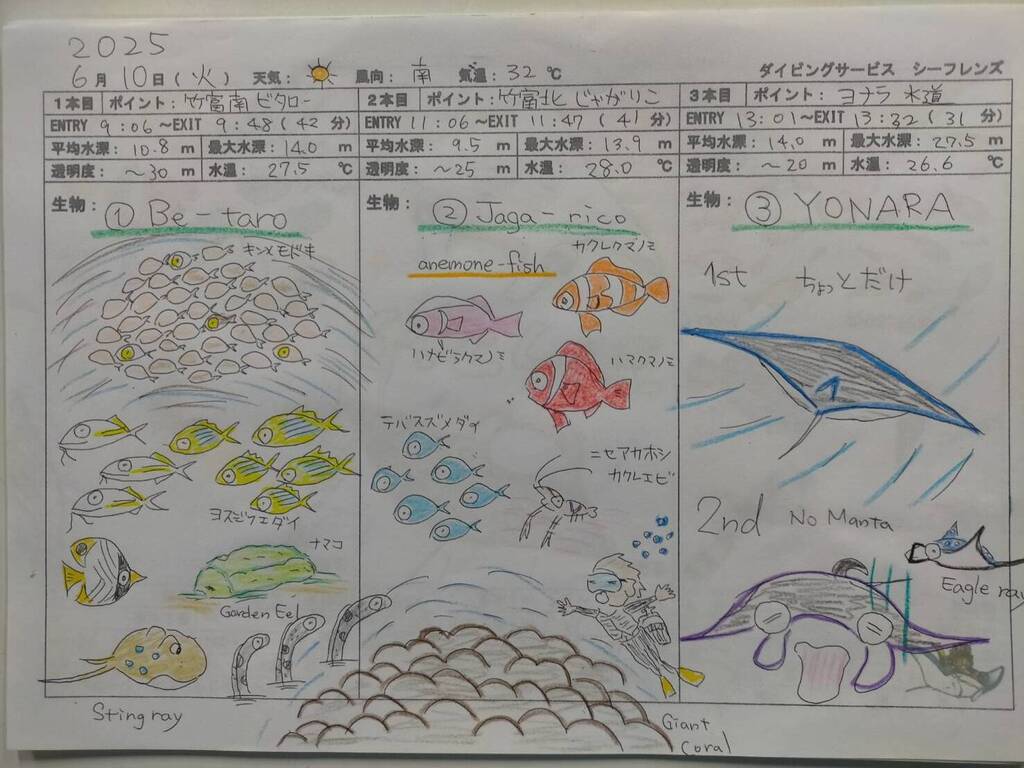 2025
6月10日(火) 天気: 風向: 南 気温: 32℃ ダイビングサービス シーフレンズ
1本目 ポイント: 竹富南 ビタロー
ENTRY 9:06~EXIT 9:48(42分)
平均水深: 10.8 m 最大水深: 14.0 m
透明度: ~30 m 水温: 27.5 ℃
生物: ① Be-taro
キンメモドキ
ヨスジフエダイ
ナマコ
Garden Eel
Sting ray
2本目 ポイント: 竹富北 じゃがりこ
ENTRY 11:06~EXIT 11:47(41分)
平均水深: 9.5 m 最大水深: 13.9 m
透明度: ~25 m 水温: 28.0 ℃
生物: ② Jaga-rico
カクレクマノミ
anemone-fish
ハナビラクマノミ
ハマクマノミ
テバスズメダイ
ニセアカホシ
カクレエビ
Giant
Coral
3本目 ポイント: ヨナラ水道
ENTRY 13:01~EXIT 13:32(31分)
平均水深: 14.0 m 最大水深: 27.5 m
透明度: ~20 m 水温: 26.6 ℃
生物: ③ YONARA
1st ちょっとだけ
2nd No Manta
Eagle ray